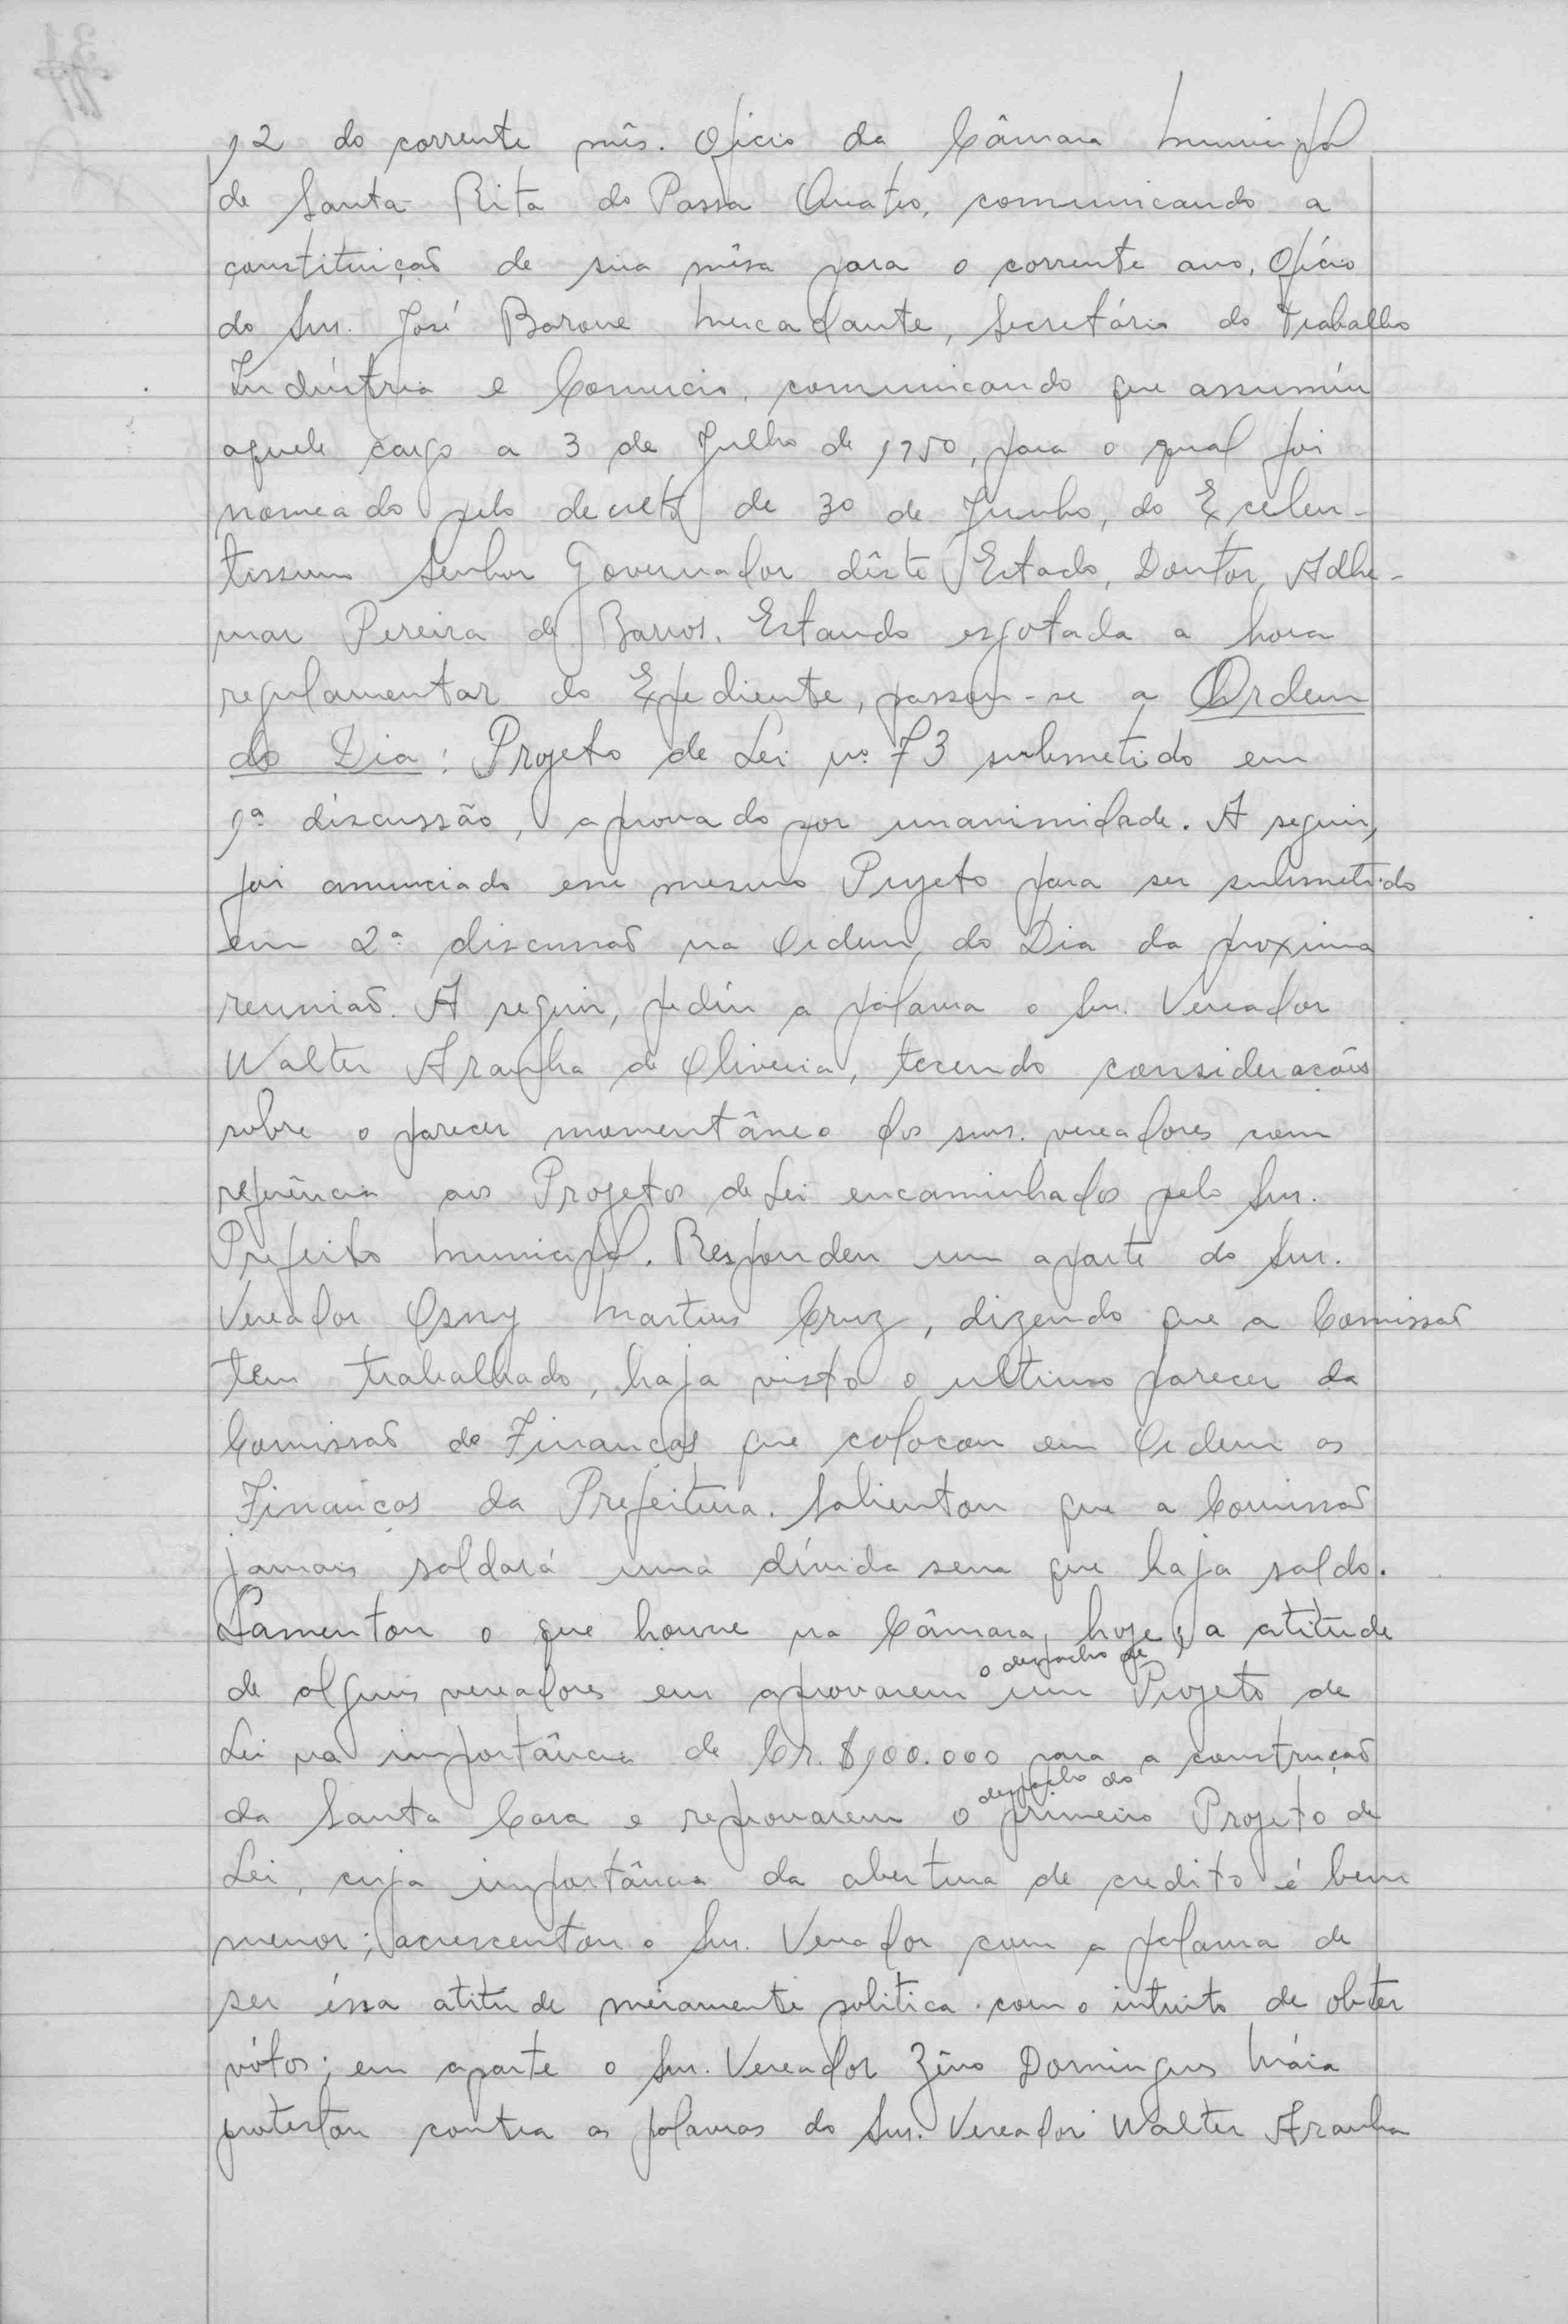 12 do corrente mês. Oficio da Câmara Municipal
de Santa Rita do Passa Quatro, comunicando a
constituiçaõ de sua mêsa para o corrente ano, Ofício
do Snr. José Barone Mercadante, Secretário do Trabalho
Indústria e Comercio, comunicando que assumíu
aquele cargo a 3 de Julho de 1950, para o qual foi
nomeado pelo decreto de 30 de Junho, do Excelen-
tissimo Senhor Governador dêste Estado, Doutor Adhe-
mar Pereira de Barros. Estando esgotada a hora
regulamentar do Expediente, passou-se a Ordem
do Dia: Projeto de Lei nº 73 submetido em
1ª discussão, aprovado por unanimidade. A seguir,
foi anunciado esse mesmo Projeto para ser submetido
em 2ª discussaõ na Ordem do Dia da proxima
reuniaõ. A seguir, pedíu a palavra o Snr. Vereador
Walter Aranha de Oliveira, tecendo consideracões
sobre o parecer momentâneo dos snrs. vereadores com
referência aos Projetos de Lei encaminhados pelo Snr.
Prefeito Municipal. Respondeu um aparte do Snr.
Vereador Osny Martins Cruz, dizendo que a Comissaõ
tem trabalhado, haja visto o ultimo parecer da
Comissaõ de Finanças que colocou em Ordem as
Finanças da Prefeitura. Salientou que a Comissaõ
jamais saldará uma dívida sem que haja saldo.
Lamentou o que houve na Câmara, hoje, a atitude
de alguns vereadores em aprovarem o despacho de um Projeto de
Lei na importância de Cr. $100.000 para a construçaõ
da Santa Casa e reprovarem o despacho do primeiro Projeto de
Lei, cuja importância da abertura de credito é bem
menor; acrescentou o Snr. Vereador com a palavra de
ser éssa atitude méramente politica com o intuito de obter
vótos; em aparte o Snr. Vereador Zêno Domingues Máia
protestou contra as palavras do Snr. Vereador Walter Aranha